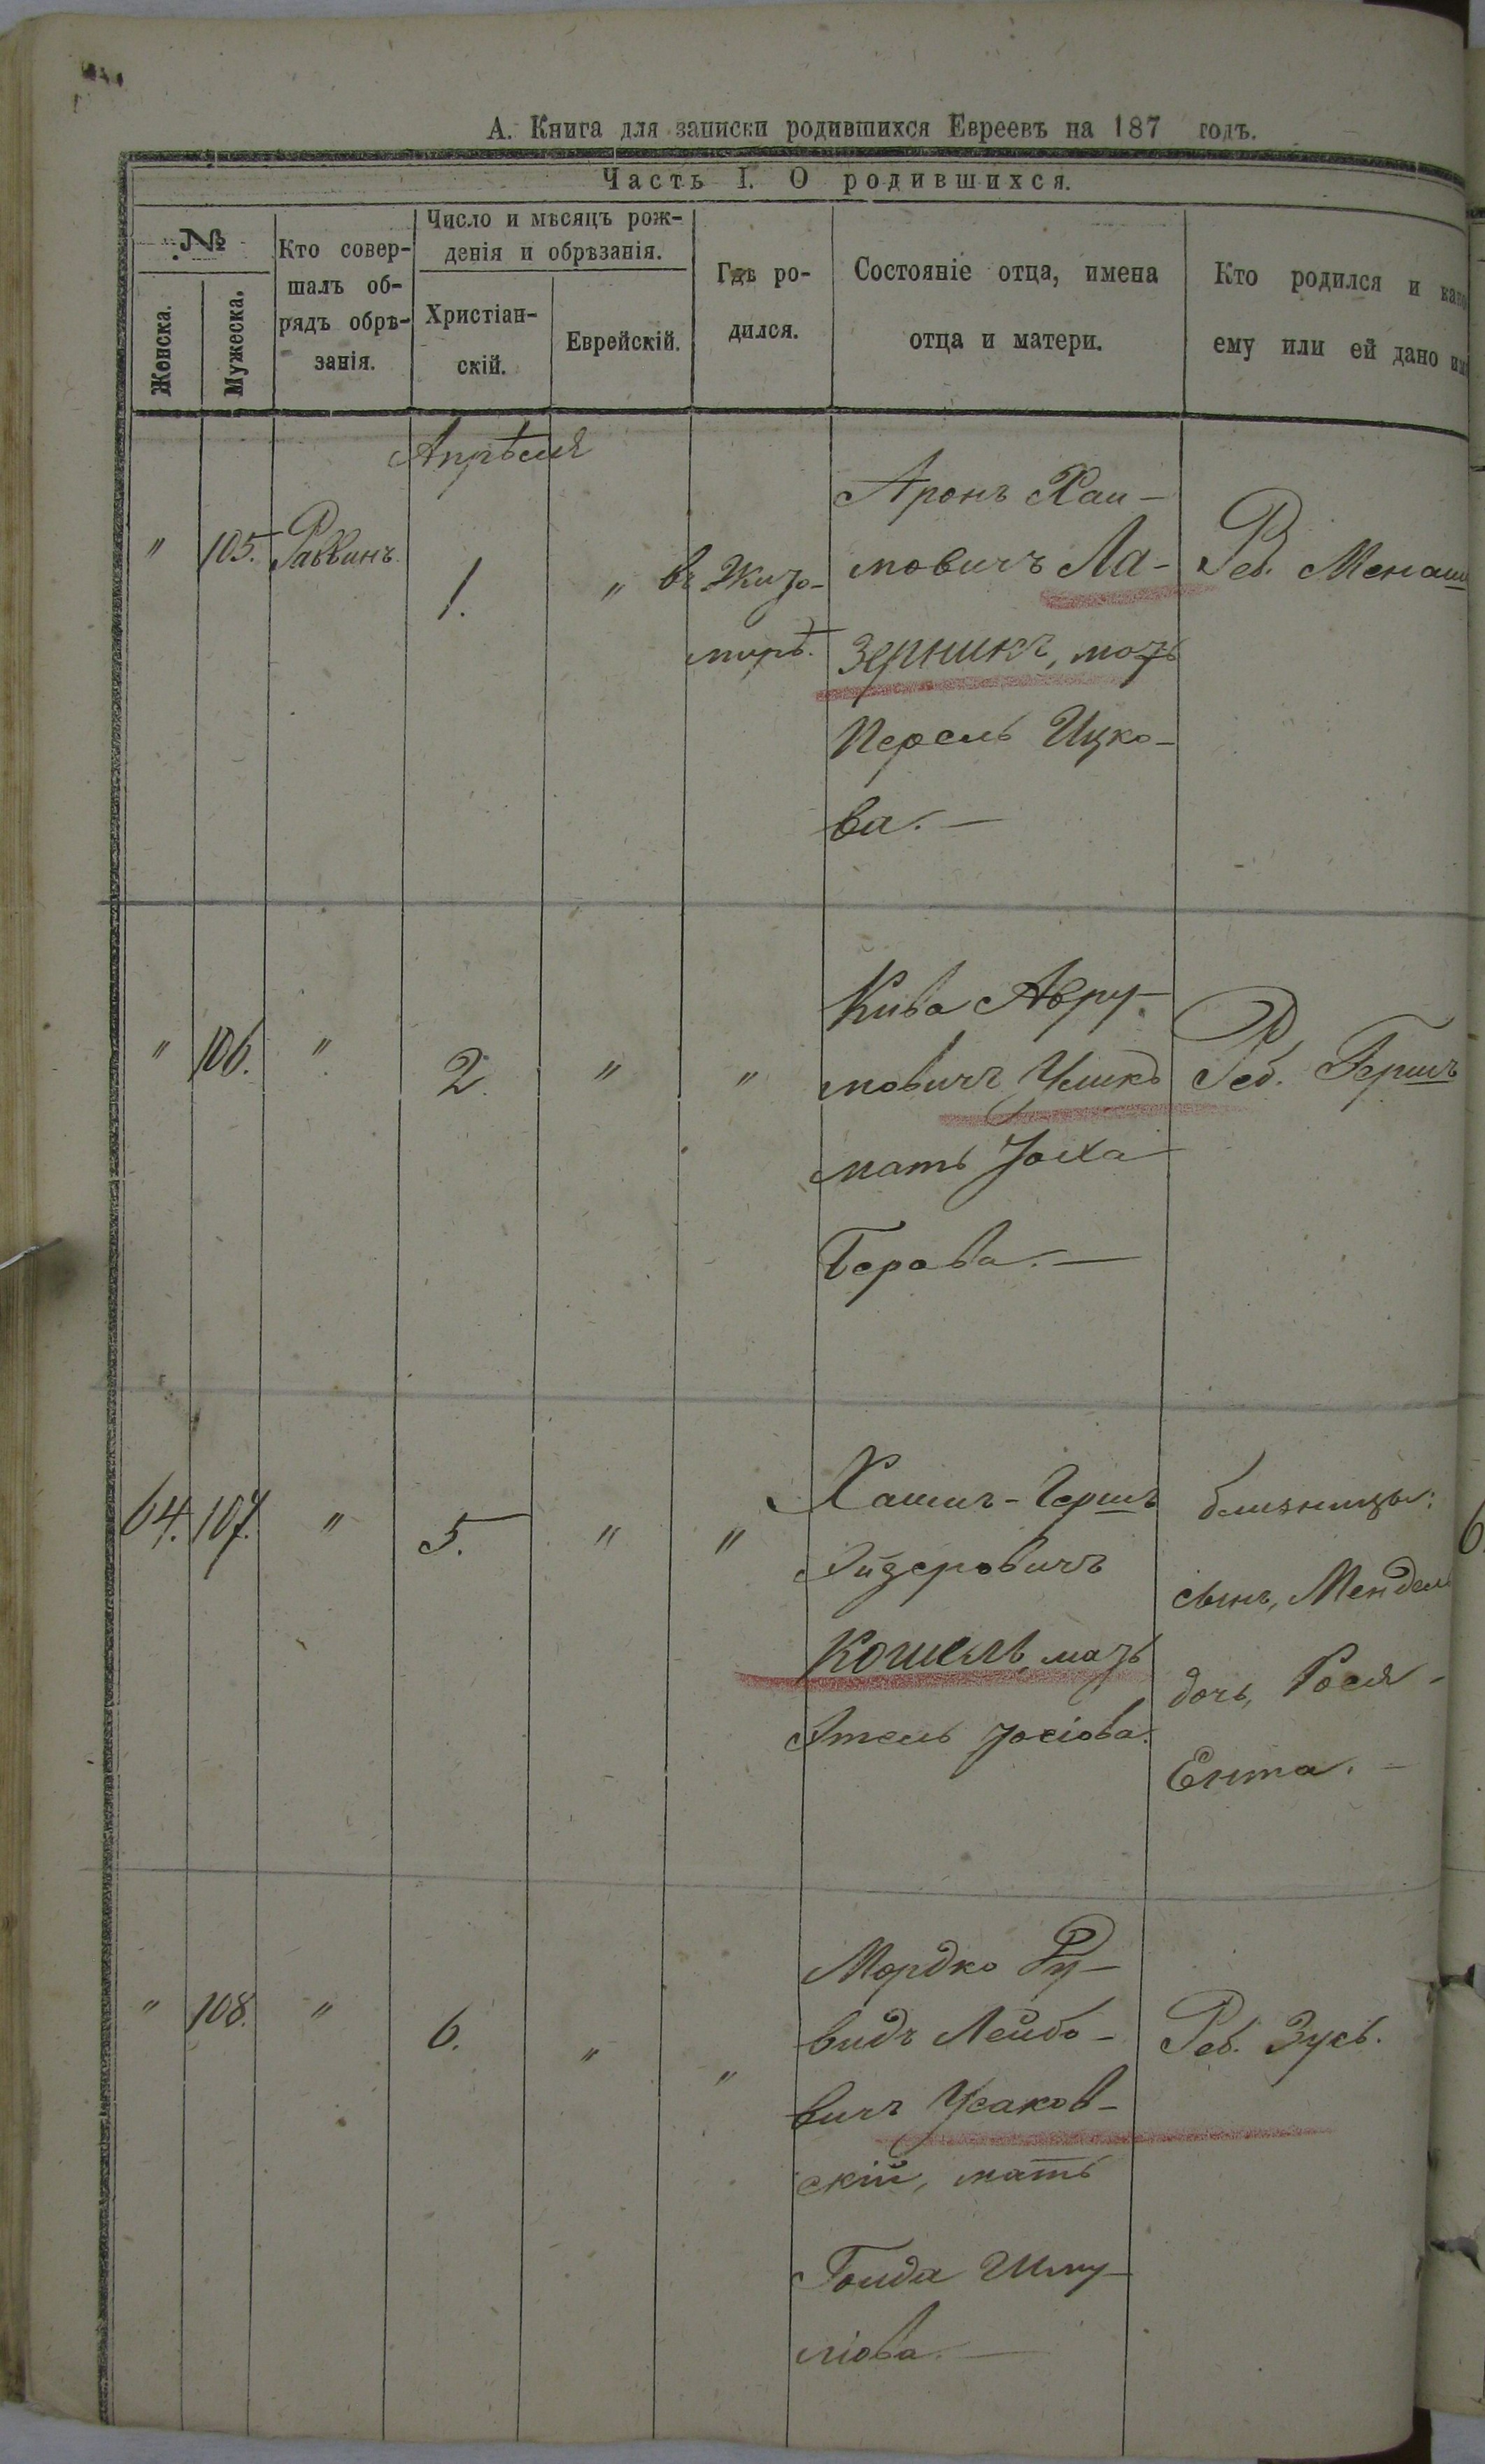 А. Книга для записки родившихся Евреевъ на 187 годъ.
Часть I. О родившихся.
№
Женска.
Мужеска.
Кто совер-
шалъ об-
рядъ обрѣ-
занія.
Число и мѣсяцъ рож-
денія и обрѣзанія.
Христіан-
скій.
Еврейскій.
Гдѣ ро-
дился.
Состояніе отца, имена
отца и матери.
Кто родился и како
ему или ей дано им
Апрѣля
" 105. Раввинъ 1. "
въ Жито-
мирѣ.
Аронъ Хаи-
мовичъ Ла-
зерникъ, мать
Перель Ицко-
ва. —
Реб. Менаш
" 106. " 2. " "
Кива Авру-
мовичъ Ушкъ
мать
Берова. —
Реб. Гершъ
64. 107. " 5. " "
Хаимъ-Гершъ
Эйзеровичъ
Кошель, мать
Этель Іосіова.
близницы:
сынъ, Мендель
дочь, Рося-
Ента. —
" 108. " 6. " "
Мордко Ру-
видъ Лейбо-
вичъ Усаков-
скій, мать
Голда Шму-
ліова. —
Реб. Зусь.
6